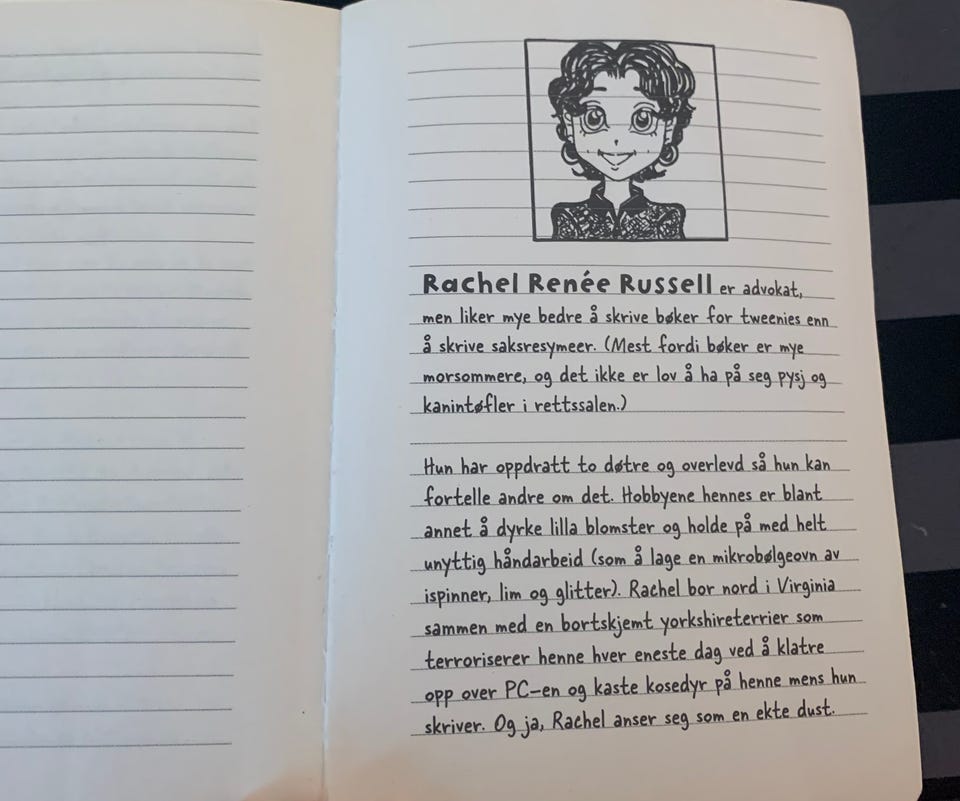 Rachel Renée Russell er advokat,
men liker mye bedre å skrive bøker for tweenies enn
å skrive saksresymeer. (Mest fordi bøker er mye
morsommere, og det ikke er lov å ha på seg pysj og
kanintøfler i rettssalen.)
Hun har oppdratt to døtre og overlevd så hun kan
fortelle andre om det. Hobbyene hennes er blant
annet å dyrke lilla blomster og holde på med helt
unyttig håndarbeid (som å lage en mikrobølgeovn av
ispinner, lim og glitter). Rachel bor nord i Virginia
sammen med en bortskjemt yorkshireterrier som
terroriserer henne hver eneste dag ved å klatre
opp over PC-en og kaste kosedyr på henne mens hun
skriver. Og ja, Rachel anser seg som en ekte dust.